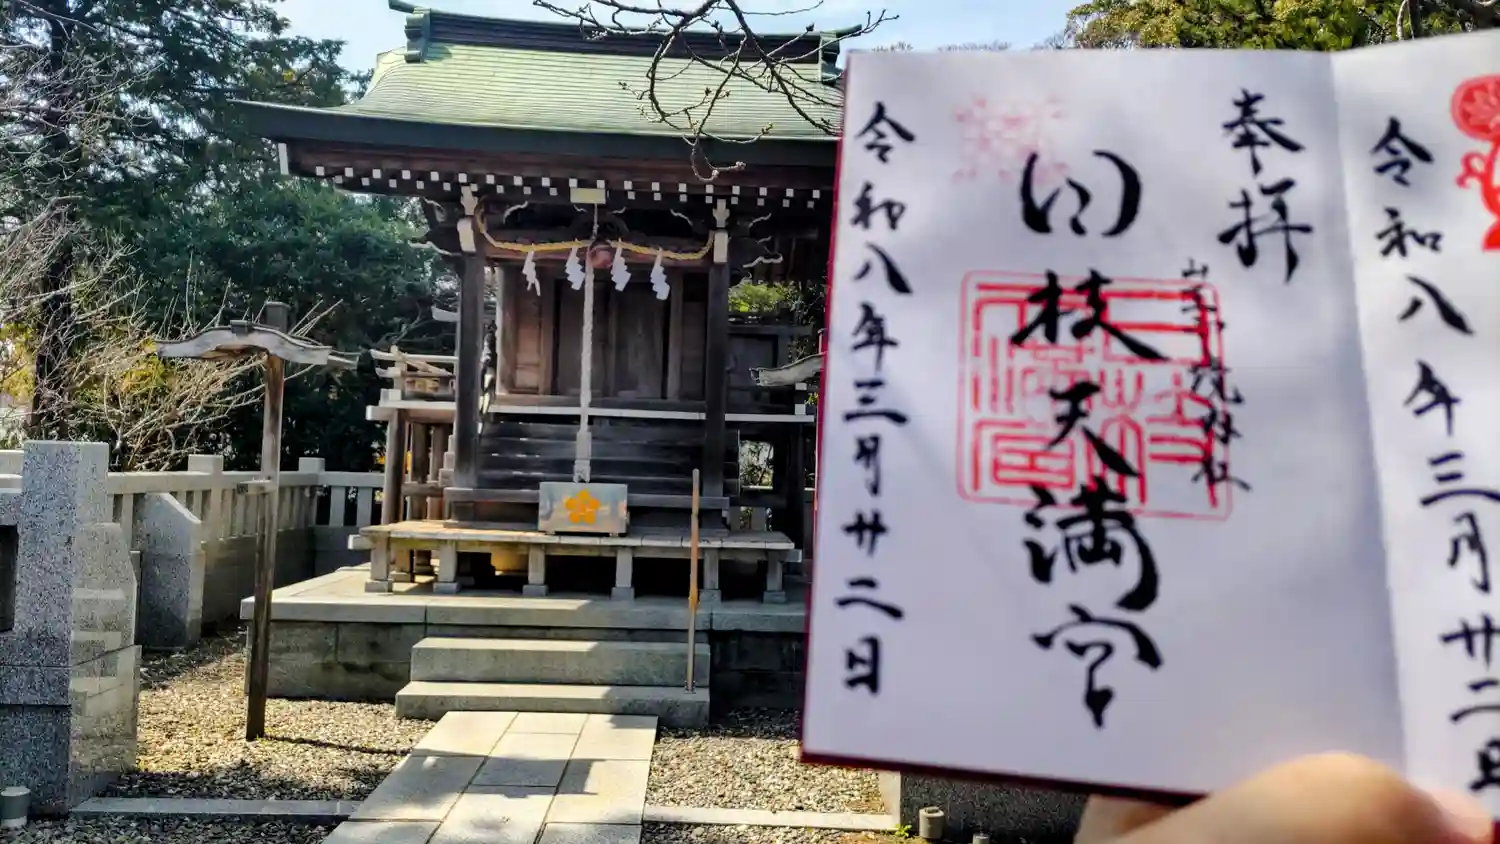 奉拝
枝天満宮
令和八年三月廿二日
令和八年三月廿二日